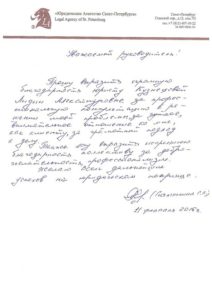 «Юридическое Агентство Санкт-Петербурга»
Legal Agency of St. Petersburg
Санкт-Петербург
Уважаемый руководитель!
Прошу выразить огромную
благодарность юристу Кузнецовой
Лидии Александровне за профес-
сиональную компетенцию в ре-
шении моей проблемы, за чуткое,
внимательное отношение ко мне,
как клиенту, за грамотный подход
к делу.
Также хочу выразить искреннюю
благодарность коллективу за добро-
желательность, профессионализм.
Желаю всем дальнейших
успехов на юридическом поприще.
11 февраля 2016 г.